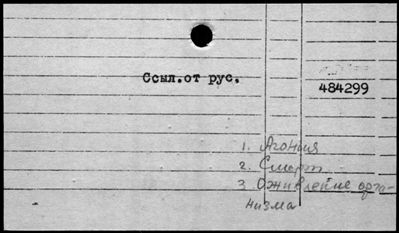 Ссыл.от рус.
484299
1. Агония
2. Смерть
3 Оживление орга-
низма